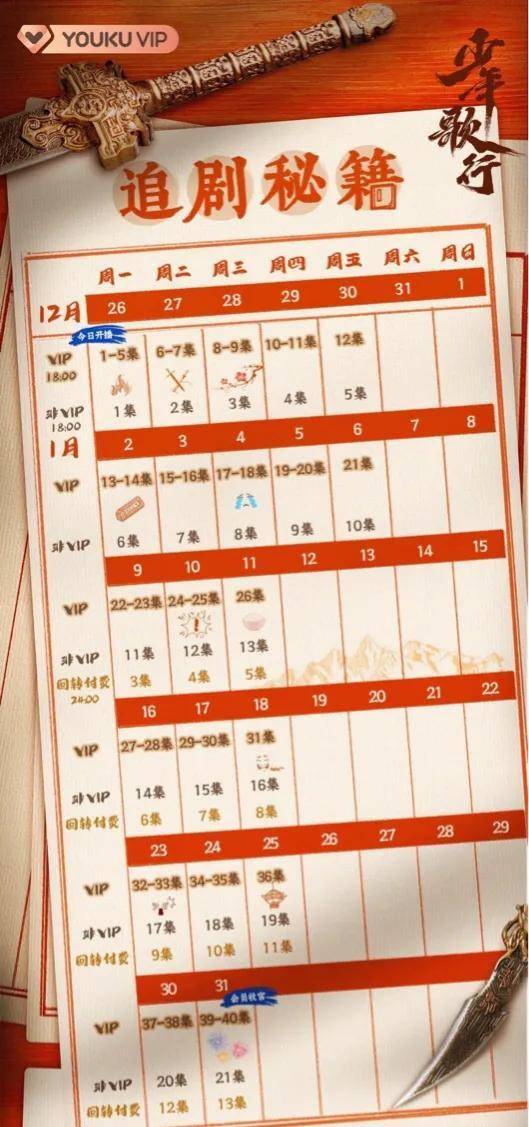 YOUKU VIP
少年歌行
追剧秘籍
周一 周二 周三 周四 周五 周六 周日
12月 26 27 28 29 30 31 1
今日开播
VIP 18:00 1-5集 6-7集 8-9集 10-11集 12集
非VIP 18:00 1集 2集 3集 4集 5集
1月 2 3 4 5 6 7 8
VIP 13-14集 15-16集 17-18集 19-20集 21集
非VIP 6集 7集 8集 9集 10集
9 10 11 12 13 14 15
VIP 22-23集 24-25集 26集
非VIP 11集 12集 13集
回转付费 24:00 3集 4集 5集
16 17 18 19 20 21 22
VIP 27-28集 29-30集 31集
非VIP 14集 15集 16集
回转付费 6集 7集 8集
23 24 25 26 27 28 29
VIP 32-33集 34-35集 36集
非VIP 17集 18集 19集
回转付费 9集 10集 11集
30 31
会员收官
VIP 37-38集 39-40集
非VIP 20集 21集
回转付费 12集 13集